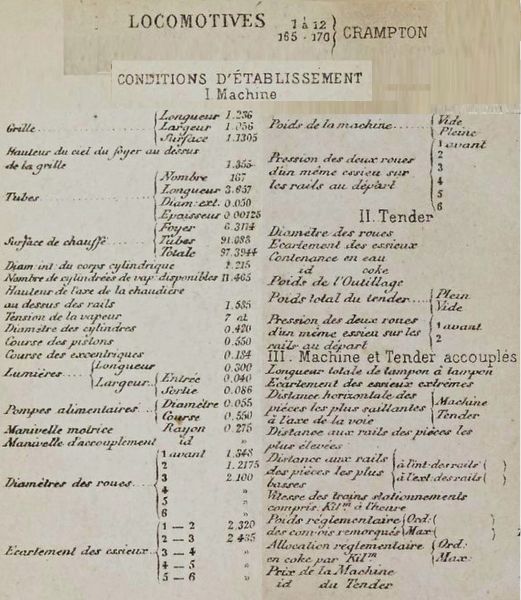 LOCOMOTIVES 1 à 12
165 - 170 CRAMPTON
CONDITIONS D'ÉTABLISSEMENT
I. Machine
Grille Longueur 1.236
Largeur 1.056
Surface 1.1305
Hauteur du ciel du foyer au dessus
de la grille 1.355
Tubes Nombre 167
Longueur 3.657
Diam. ext. 0.050
Epaisseur 0.00125
Surface de chauffe Foyer
Tubes
Totale 97.3944
Diam. int. du corps cylindrique 1.215
Nombre de cylindrées de vap. disponibles 11.465
Hauteur de l'axe de la chaudière
au dessus des rails 1.585
Tension de la vapeur 7 at.
Diamètre des cylindres 0.420
Course des pistons 0.550
Course des excentriques
Lumières Longueur 0.300
Largeur Entrée 0.040
Sortie 0.086
Pompes alimentaires Diamètre 0.055
Course 0.550
Manivelle motrice Rayon 0.275
Manivelle d'accouplement id "
Diamètres des roues 1 avant
2 1.2175
3 2.100
4 "
5 "
6 "
Ecartement des essieux 1 — 2 2.320
2 — 3 2.435
3 — 4 "
4 — 5 "
5 — 6 "
Poids de la machine Vide
Pleine
Pression des deux roues
d'un même essieu sur
les rails au départ 1 avant
2
3
4
5
6
II. Tender
Diamètre des roues
Ecartement des essieux
Contenance en eau
id coke
Poids de l'Outillage
Poids total du tender Plein
Vide
Pression des deux roues
d'un même essieu sur les
rails au départ 1 avant
2
III. Machine et Tender accouplés
Longueur totale de tampon à tampon
Ecartement des essieux extrêmes
Distance horizontale des
pièces les plus saillantes
à l'axe de la voie Machine
Tender
Distance aux rails des pièces les
plus élevées
Distance aux rails
des pièces les plus
basses à l'int. des rails ( )
à l'ext. des rails ( )
Vitesse des trains stationnements
compris. Kil.m à l'heure
Poids réglementaire Ord: ( )
des convois remorqués Max: ( )
Allocation réglementaire Ord:
en coke par Kil.m Max:
Prix de la Machine
id du Tender